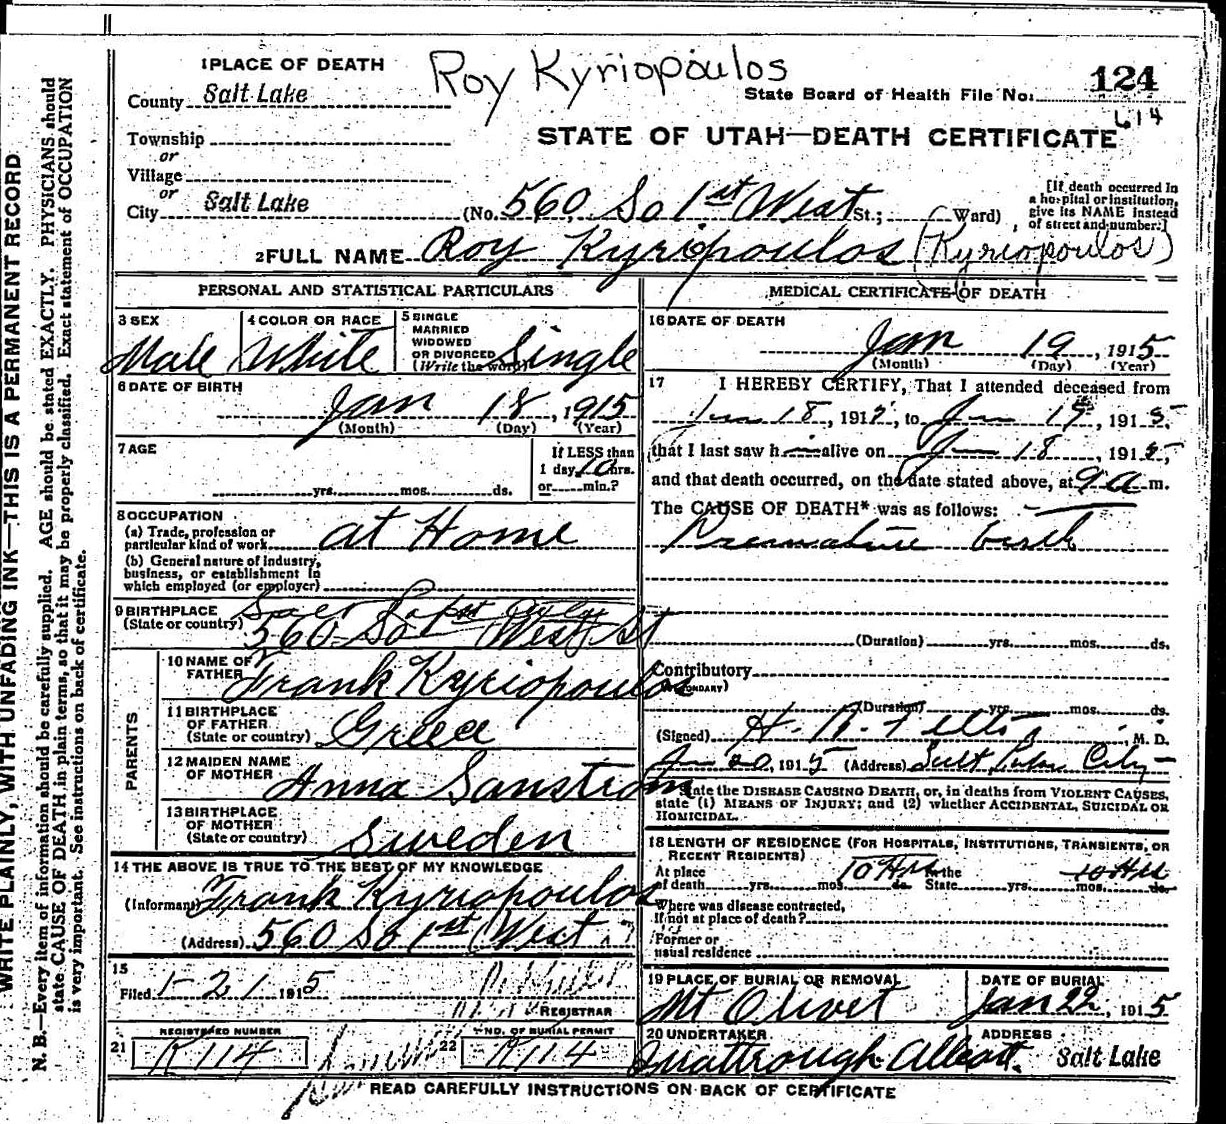 Roy Kyriopoulos
1 PLACE OF DEATH
County Salt Lake
Township
or
Village
or
City Salt Lake
State Board of Health File No. 124
614
STATE OF UTAH—DEATH CERTIFICATE
(No. 560 So 1st West St.; Ward)
[If death occurred in a hospital or institution, give its NAME instead of street and number.]
2 FULL NAME Roy Kyriopoulos (Kyriopoulos)
PERSONAL AND STATISTICAL PARTICULARS
3 SEX
Male
4 COLOR OR RACE
White
5 SINGLE
MARRIED
WIDOWED
OR DIVORCED
(Write the word) Single
6 DATE OF BIRTH
Jan 18, 1915
(Month) (Day) (Year)
7 AGE
yrs. mos. ds.
If LESS than
1 day, 10 hrs.
or min.?
8 OCCUPATION
(a) Trade, profession or
particular kind of work at Home
(b) General nature of industry,
business, or establishment in
which employed (or employer)
9 BIRTHPLACE
(State or country) 560 So 1st West St
PARENTS
10 NAME OF
FATHER Frank Kyriopoulos
11 BIRTHPLACE
OF FATHER
(State or country) Greece
12 MAIDEN NAME
OF MOTHER Anna Sanstrom
13 BIRTHPLACE
OF MOTHER
(State or country) Sweden
14 THE ABOVE IS TRUE TO THE BEST OF MY KNOWLEDGE
(Informant) Frank Kyriopoulos
(Address) 560 So 1st West
15
Filed 1-21 1915
REGISTRAR
REGISTERED NUMBER
21 K114
NO. OF BURIAL PERMIT
22 K114
MEDICAL CERTIFICATE OF DEATH
16 DATE OF DEATH
Jan 19, 1915
(Month) (Day) (Year)
17 I HEREBY CERTIFY, That I attended deceased from
Jan 18, 1915, to Jan 19, 1915,
that I last saw him alive on Jan 18, 1915,
and that death occurred, on the date stated above, at 9 a m.
The CAUSE OF DEATH* was as follows:
Premature birth
(Duration) yrs. mos. ds.
Contributory
(SECONDARY)
(Duration) yrs. mos. ds.
(Signed) H. N., M. D.
Jan 20, 1915 (Address) Salt Lake City
State the DISEASE CAUSING DEATH, or, in deaths from VIOLENT CAUSES,
state (1) MEANS OF INJURY; and (2) whether ACCIDENTAL, SUICIDAL OR
HOMICIDAL.
18 LENGTH OF RESIDENCE (FOR HOSPITALS, INSTITUTIONS, TRANSIENTS, OR
RECENT RESIDENTS)
At place of death yrs. mos. 10 Hrs ds. In the State yrs. mos. 10 Hrs ds.
Where was disease contracted,
if not at place of death?
Former or
usual residence
19 PLACE OF BURIAL OR REMOVAL
Mt Olivet
DATE OF BURIAL
Jan 22, 1915
20 UNDERTAKER
ADDRESS
Salt Lake
READ CAREFULLY INSTRUCTIONS ON BACK OF CERTIFICATE
WRITE PLAINLY, WITH UNFADING INK—THIS IS A PERMANENT RECORD
N. B.—Every item of information should be carefully supplied. AGE should be stated EXACTLY. PHYSICIANS should
state CAUSE OF DEATH in plain terms, so that it may be properly classified. Exact statement of OCCUPATION
is very important. See instructions on back of certificate.